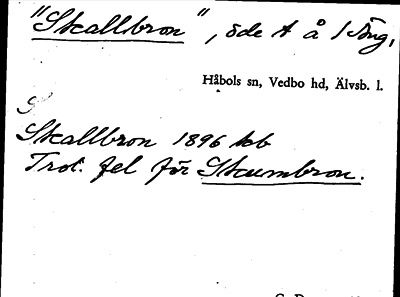 "Skallbron", öde t å 1 Tång,
Håbols sn, Vedbo hd, Älvsb. l.
S
Skallbron 1896 kb
Trol. fel för Skumbron.